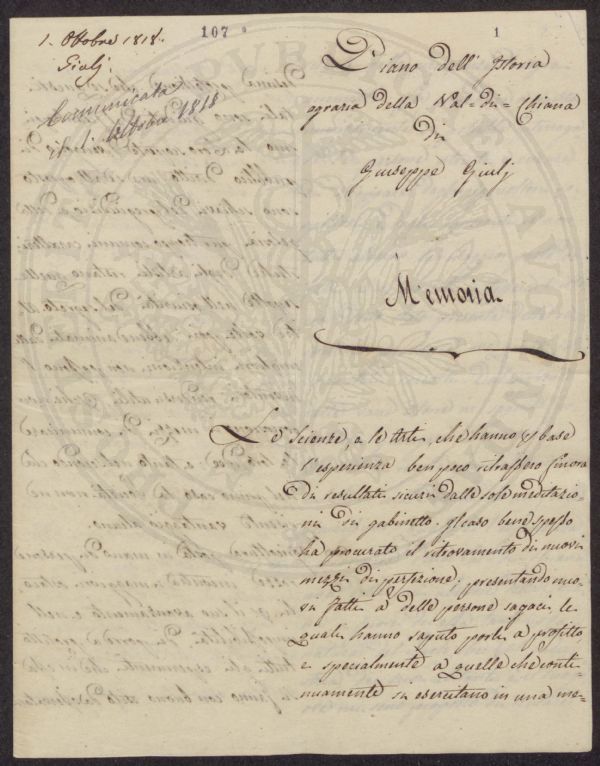 1. Ottobre 1818.
Giulj
107
1
Comunicata
Ottobre 1818
Piano dell' Istoria
agraria della Val=di=Chiana
di
Giuseppe Giulj
Memoria
Le Scienze, e le Arti, che hanno p base
l'esperienza ben poco ritrassero finora
di resultati sicuri dalle sole meditazio=
ni di gabinetto. Il caso bene spesso
ha procurato il ritrovamento di nuovi
mezzi di perfezione; presentando nuo=
vi fatti a delle persone sagaci le
quali hanno saputo porli a profitto
e specialmente a quelle che conti=
nuamente si esercitano in una me=